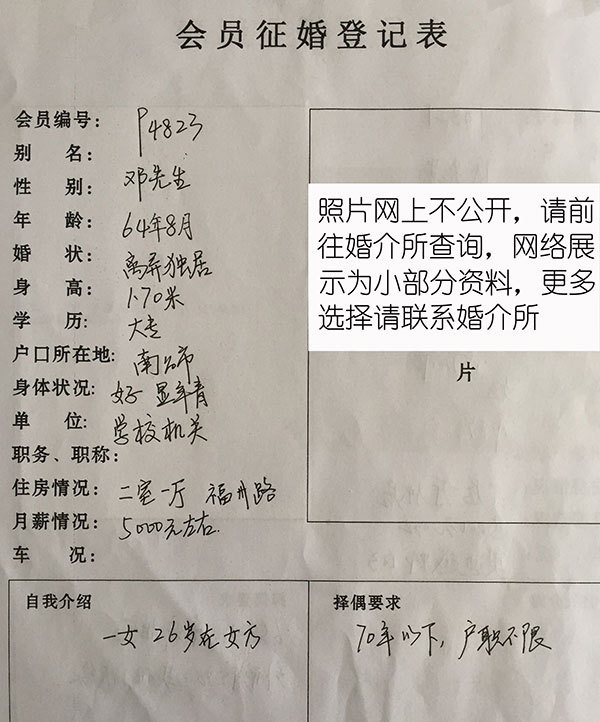 会员征婚登记表
会员编号: P4823
别 名:
性 别: 邓先生
年 龄: 64年8月
婚 状: 离异独居
身 高: 1.70米
学 历: 大专
户口所在地: 南昌市
身体状况: 好 显年青
单 位: 学校机关
职务、职称:
住房情况: 二室一厅 福州路
月薪情况: 5000元左右.
车 况:
照片网上不公开，请前
往婚介所查询，网络展
示为小部分资料，更多
选择请联系婚介所
片
自我介绍
一女 26岁在女方
择偶要求
70年以下，户职不限